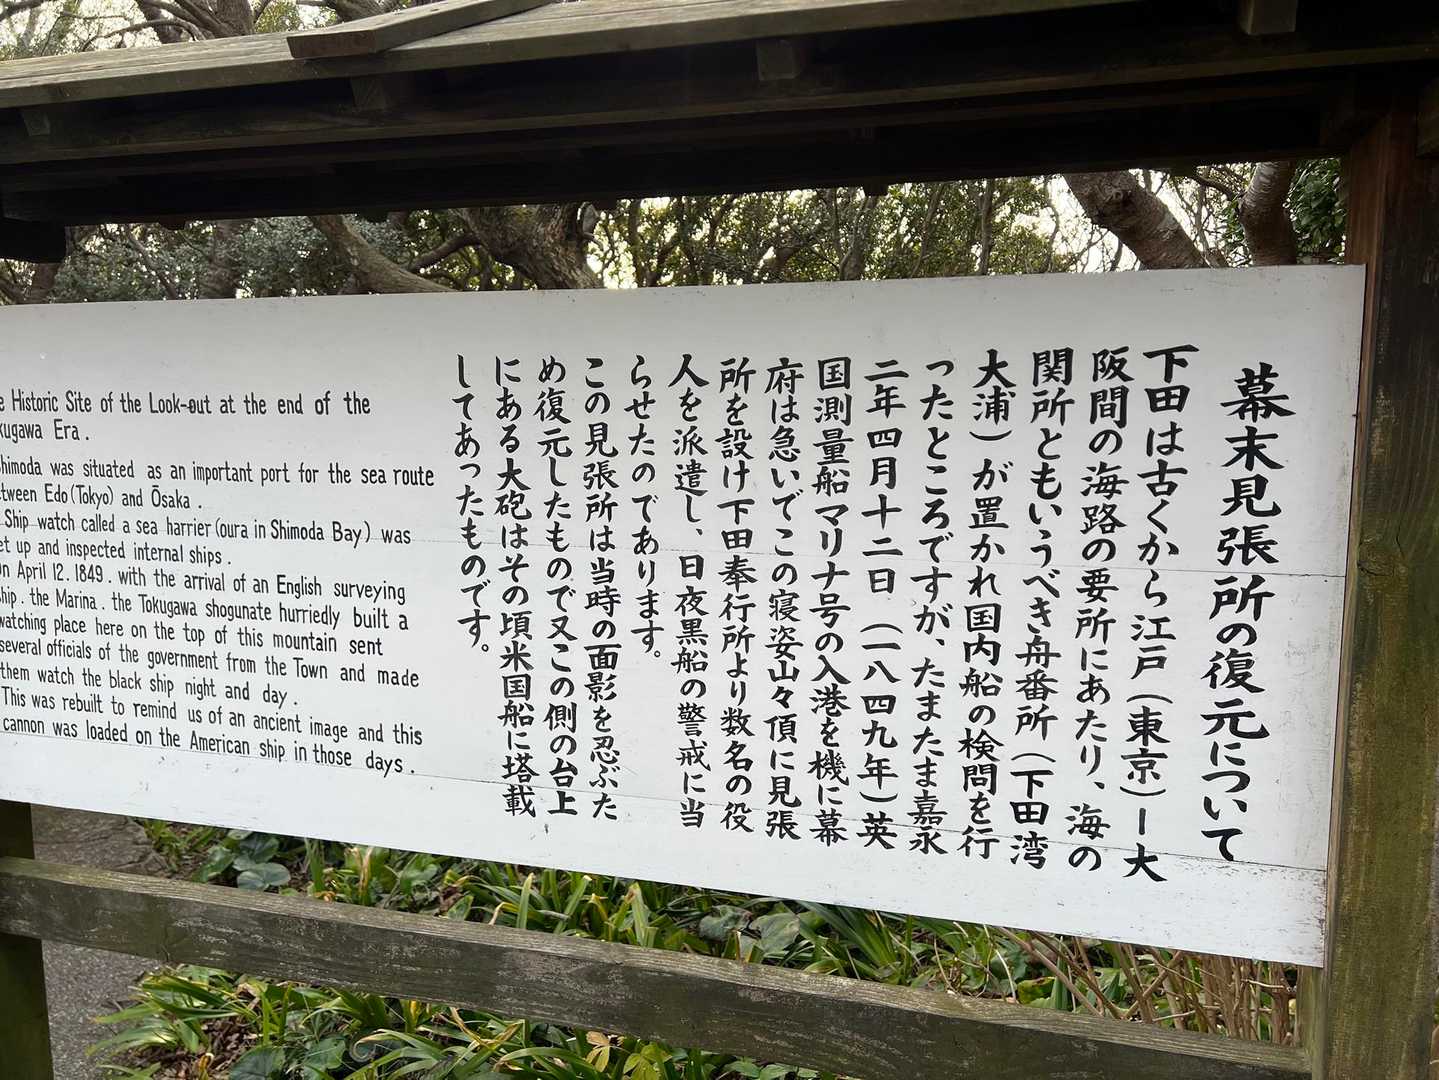 幕末見張所の復元について
下田は古くから江戸（東京）ー大
阪間の海路の要所にあたり、海の
関所ともいうべき舟番所（下田湾
大浦）が置かれ国内船の検問を行
ったところですが、たまたま嘉永
二年四月十二日（一八四九年）英
国測量船マリナ号の入港を機に幕
府は急いでこの寝姿山々頂に見張
所を設け下田奉行所より数名の役
人を派遣し、日夜黒船の警戒に当
らせたのであります。
この見張所は当時の面影を忍ぶた
め復元したもので又この側の台上
にある大砲はその頃米国船に塔載
してあったものです。
Historic Site of the Look-out at the end of the
kugawa Era.
himoda was situated as an important port for the sea route
tween Edo(Tokyo) and Ōsaka.
Ship watch called a sea harrier (oura in Shimoda Bay) was
et up and inspected internal ships.
n April 12. 1849. with the arrival of an English surveying
hip. the Marina. the Tokugawa shogunate hurriedly built a
watching place here on the top of this mountain sent
several officials of the government from the Town and made
them watch the black ship night and day.
This was rebuilt to remind us of an ancient image and this
cannon was loaded on the American ship in those days.